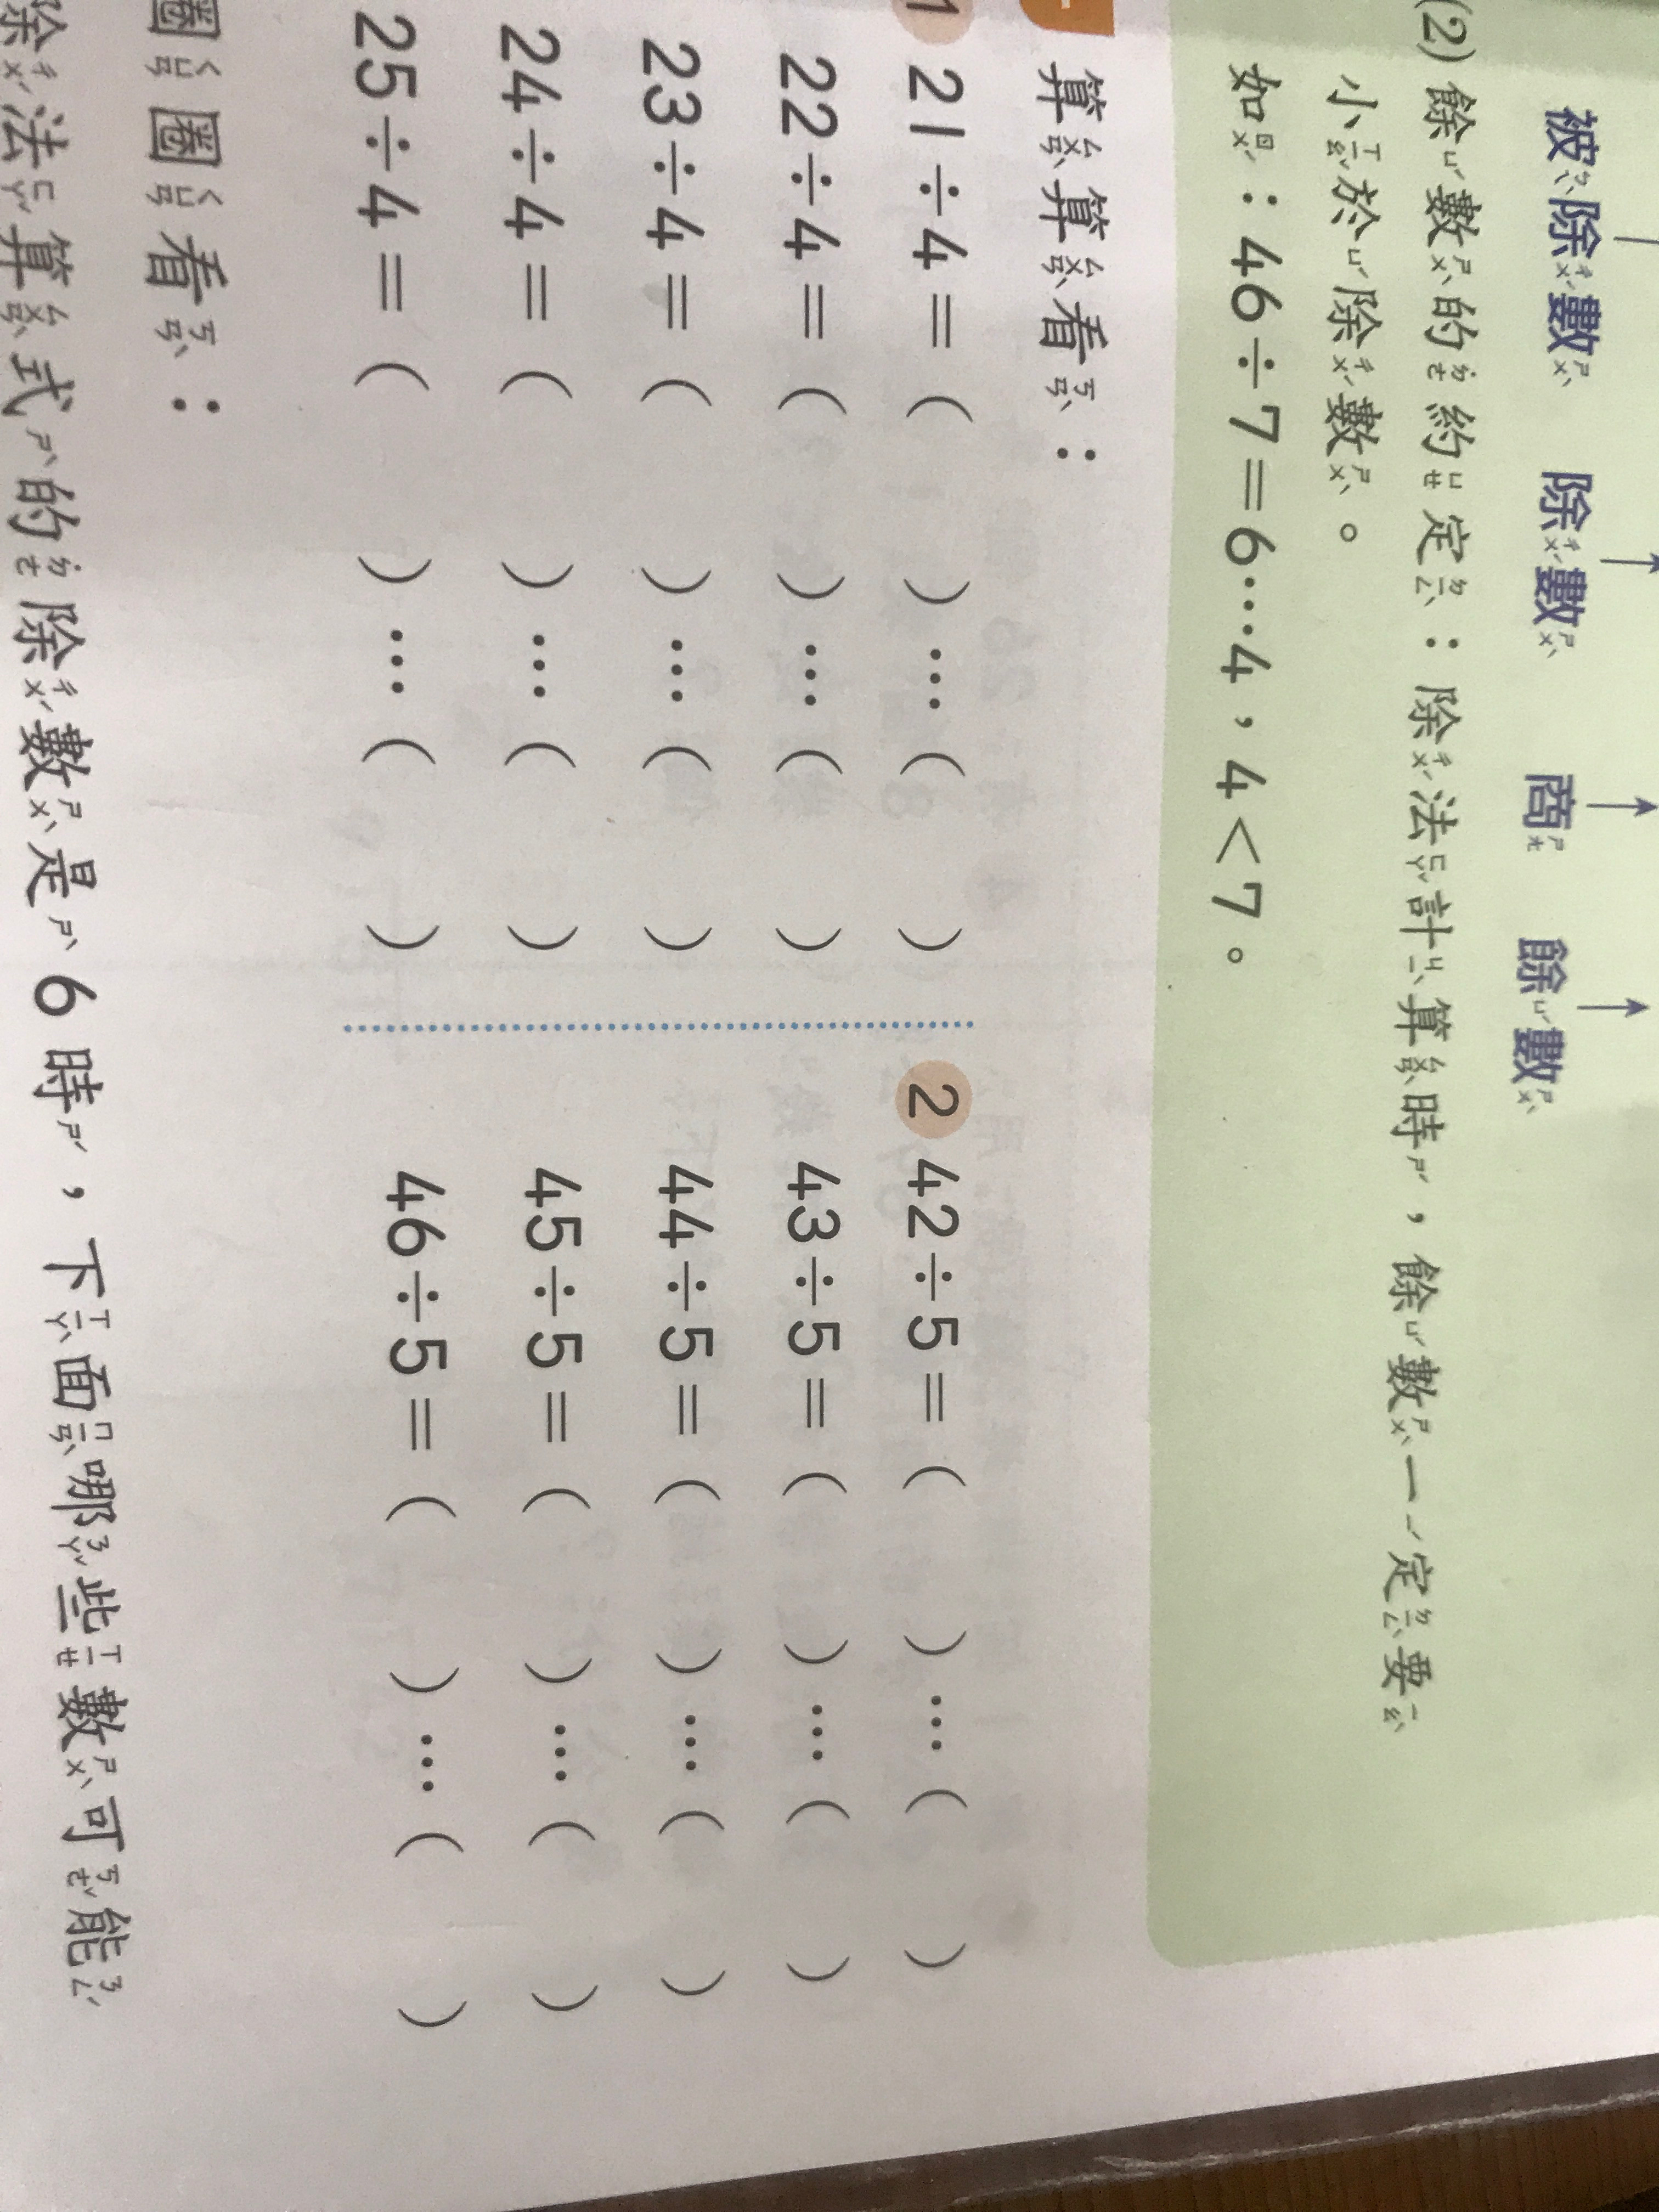 被除數 除數 商 餘數
(2) 餘數的約定：除法計算時，餘數一定要
小於除數。
如：46÷7=6…4，4<7。
算算看：
1 21÷4=( )…( )
22÷4=( )…( )
23÷4=( )…( )
24÷4=( )…( )
25÷4=( )…( )
2 42÷5=( )…( )
43÷5=( )…( )
44÷5=( )…( )
45÷5=( )…( )
46÷5=( )…( )
圈圈看：
除法算式的除數是6時，下面哪些數可能